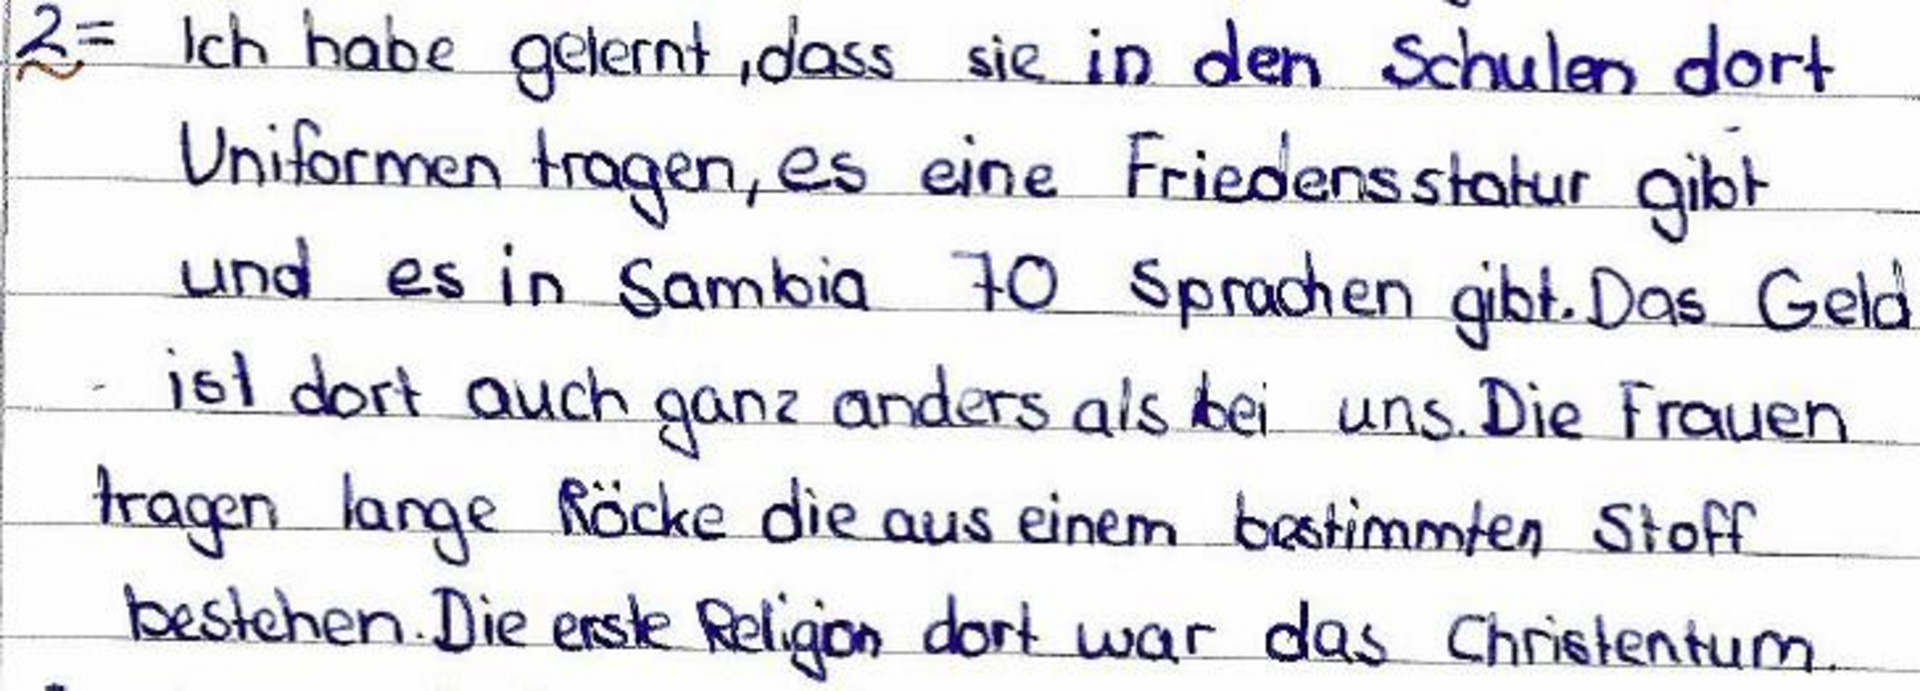 2= Ich habe gelernt, dass sie in den Schulen dort
Uniformen tragen, es eine Friedensstatur gibt
und es in Sambia 70 Sprachen gibt. Das Geld
ist dort auch ganz anders als bei uns. Die Frauen
tragen lange Röcke die aus einem bestimmten Stoff
bestehen. Die erste Religion dort war das Christentum.